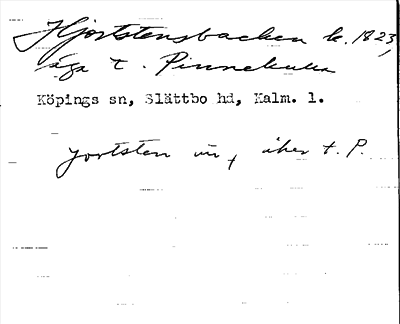 Hjortstensbacken k. 1823,
äga t. Pinnekulla
Köpings sn, Slättbo hd, Kalm. l.
Jortsten un, åker t. P.